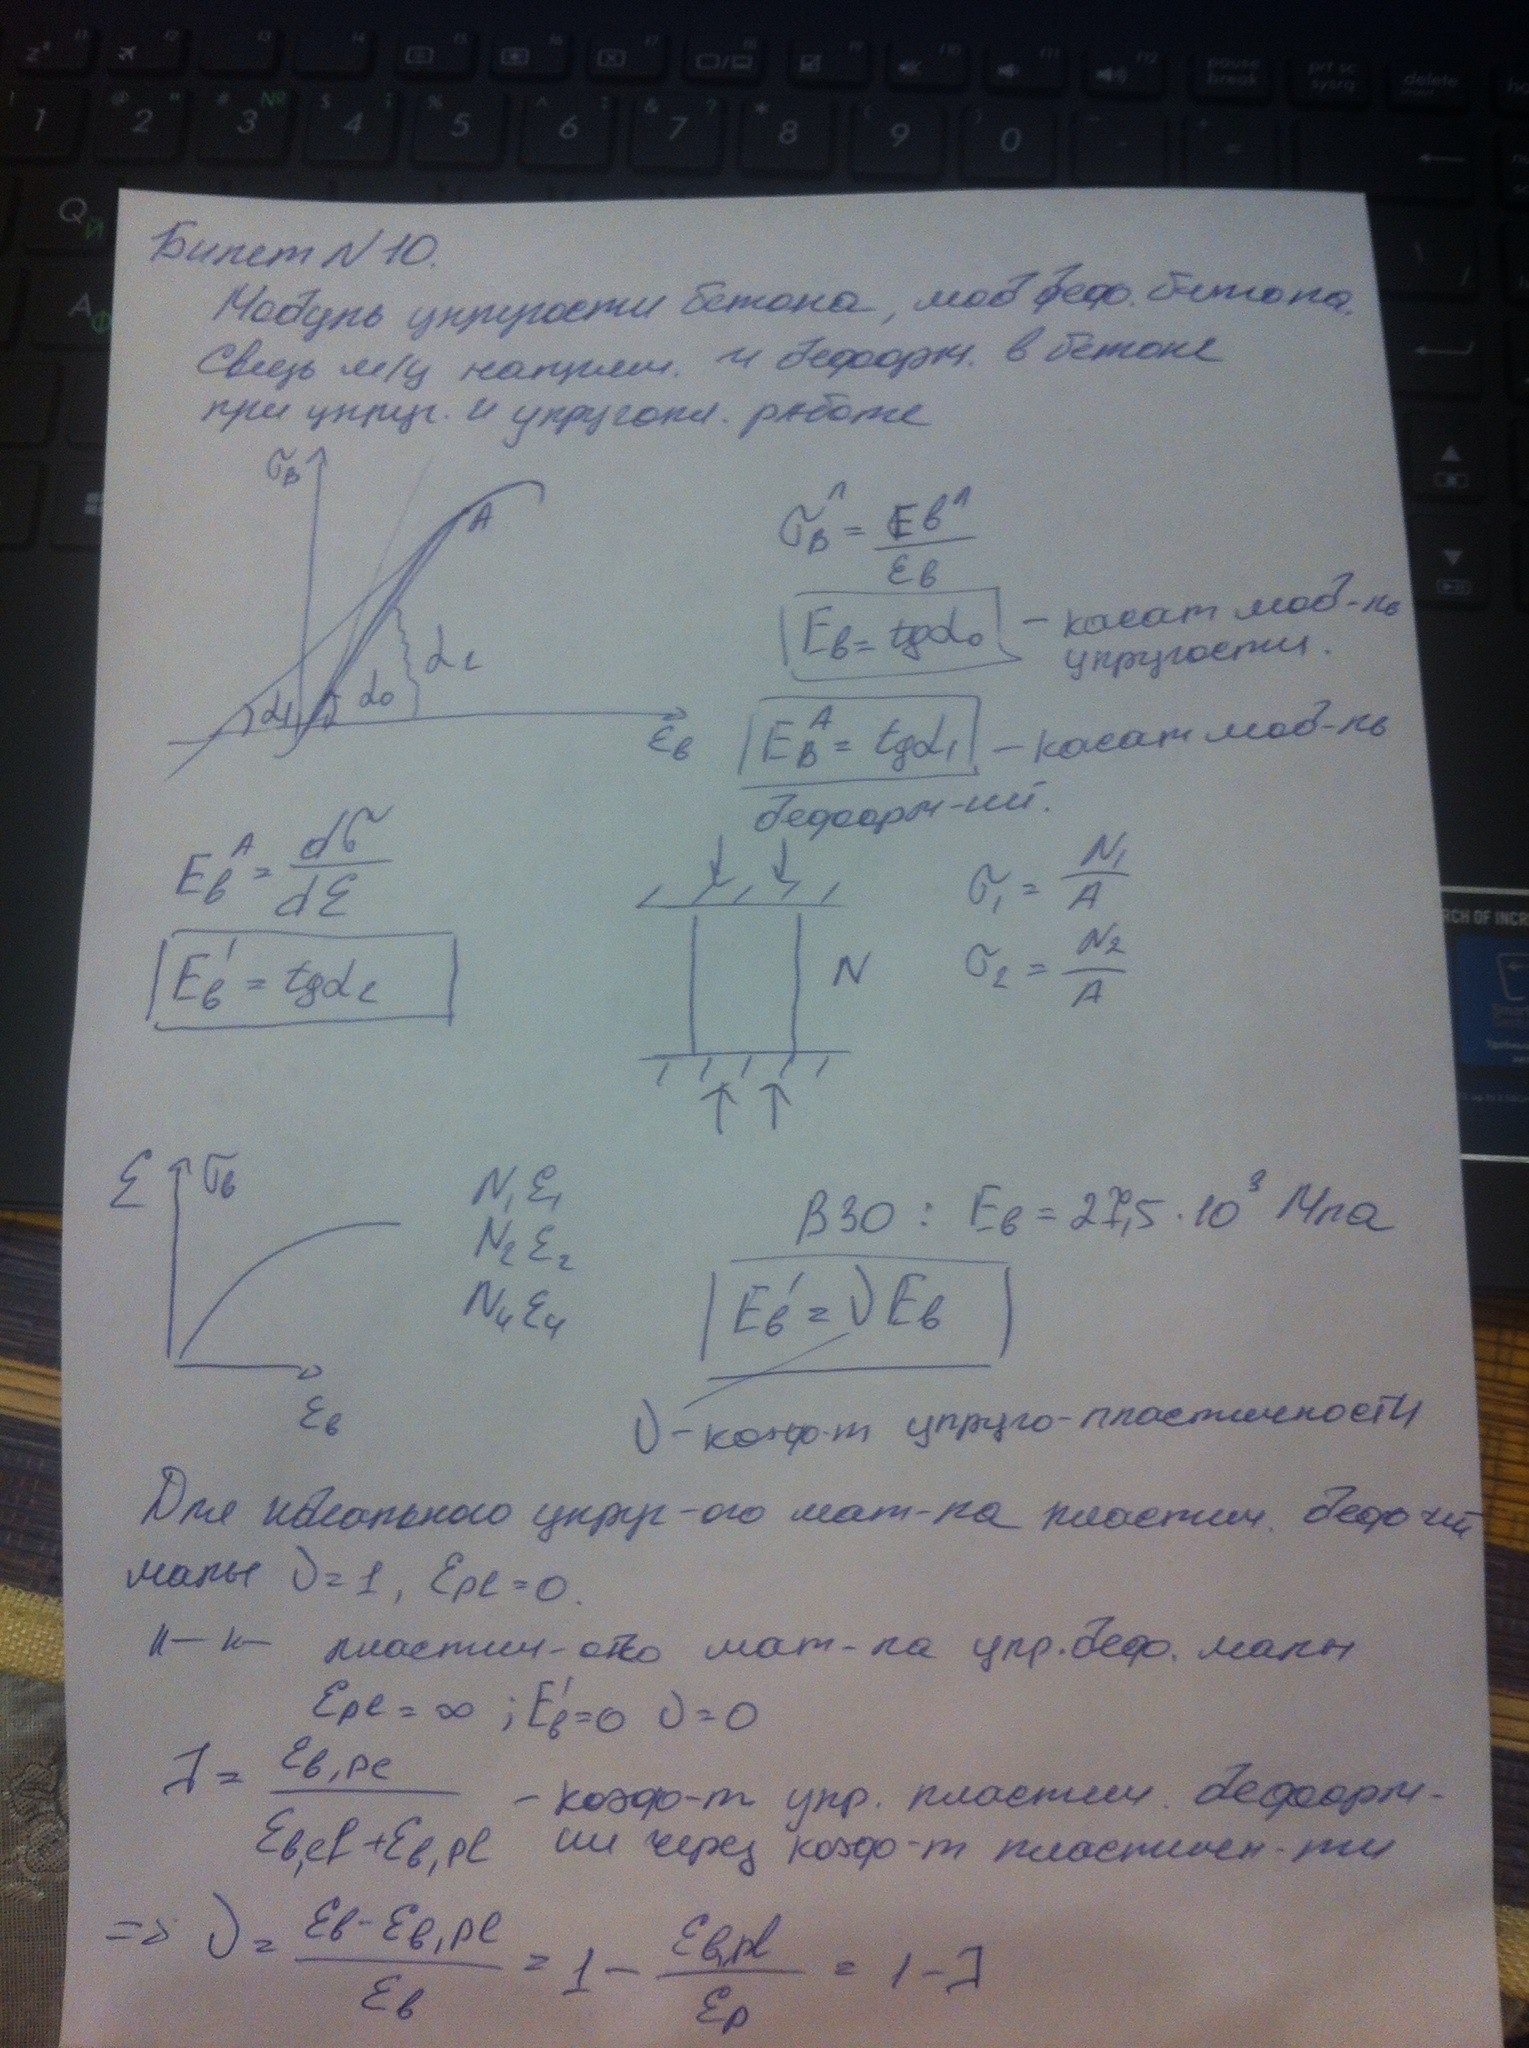 Билет N 10.
Модуль упругости бетона, мод деф. бетона.
Связь м/у напряж. и деформ. в бетоне
при упруг. и упругопл. работе
σв
A
α1 α0 α2
εв
σв^л = Eв^л / εв
Eв = tgα0 - касат мод-ль
упругости.
Eв^A = tgα1 - касат мод-ль
деформ-ий.
Eв^A = dσ / dε
Eв' = tgα2
N
σ1 = N1 / A
σ2 = N2 / A
ε σв
εв
N1 ε1
N2 ε2
N4 ε4
B30 : Eв = 27,5 · 10³ Мпа
Eв' = ν Eв
ν - коэф-т упруго-пластичности
Для идеального упруг-ого мат-ла пластич. деф-ий
малы ν = 1, εpl = 0.
II — II — пластич-ого мат-ла упр. деф. малы
εpl = ∞ ; Eв' = 0 ν = 0
λ = εв,pl / εв,el + εв,pl - коэф-т упр. пластич. деформ-
ии через коэф-т пластичен-ти
=> ν = εв - εв,pl / εв = 1 - εв,pl / εр = 1 - λ